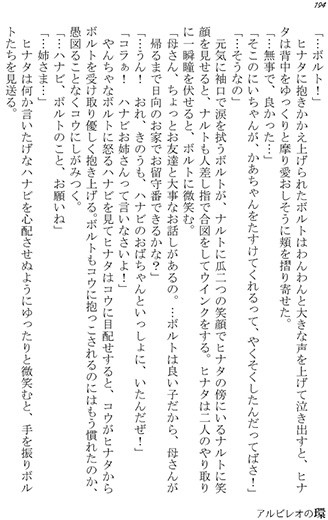 194
「…ボルト！」
ヒナタに抱きかかえ上げられたボルトはわんわんと大きな声を上げて泣き出すと、ヒナ
タは背中をゆっくりと摩り愛おしそうに頬を摺り寄せた。
「…無事で、良かった…」
「そこのにいちゃんが、かあちゃんをたすけてくれるって、やくそくしたんだってばさ！」
「…そうなの」
元気に袖口で涙を拭うボルトが、ナルトに瓜二つの笑顔でヒナタの傍にいるナルトに笑
顔を見せると、ナルトも人差し指で合図をしてウインクをする。ヒナタは二人のやり取り
に一瞬瞳を伏せると、ボルトに微笑む。
「母さん、ちょっとお友達と大事なお話しがあるの。…ボルトは良い子だから、母さんが
帰るまで日向のお家でお留守番できるかな？」
「…うん！　おれ、きのうも、ハナビのおばちゃんといっしょに、いたんだぜ！」
「コラぁ！　ハナビお姉さんって言いなさいよ！」
やんちゃなボルトに怒るハナビを見てヒナタはコウに目配せすると、コウがヒナタから
ボルトを受け取り優しく抱き上げる。ボルトもコウに抱っこされるのにはもう慣れたのか、
愚図ることなくコウにしがみつく。
「ハナビ、ボルトのこと、お願いね」
「…姉さま…」
ヒナタは何か言いたげなハナビを心配させぬようにゆったりと微笑むと、手を振りボル
トたちを見送る。
アルビレオの環